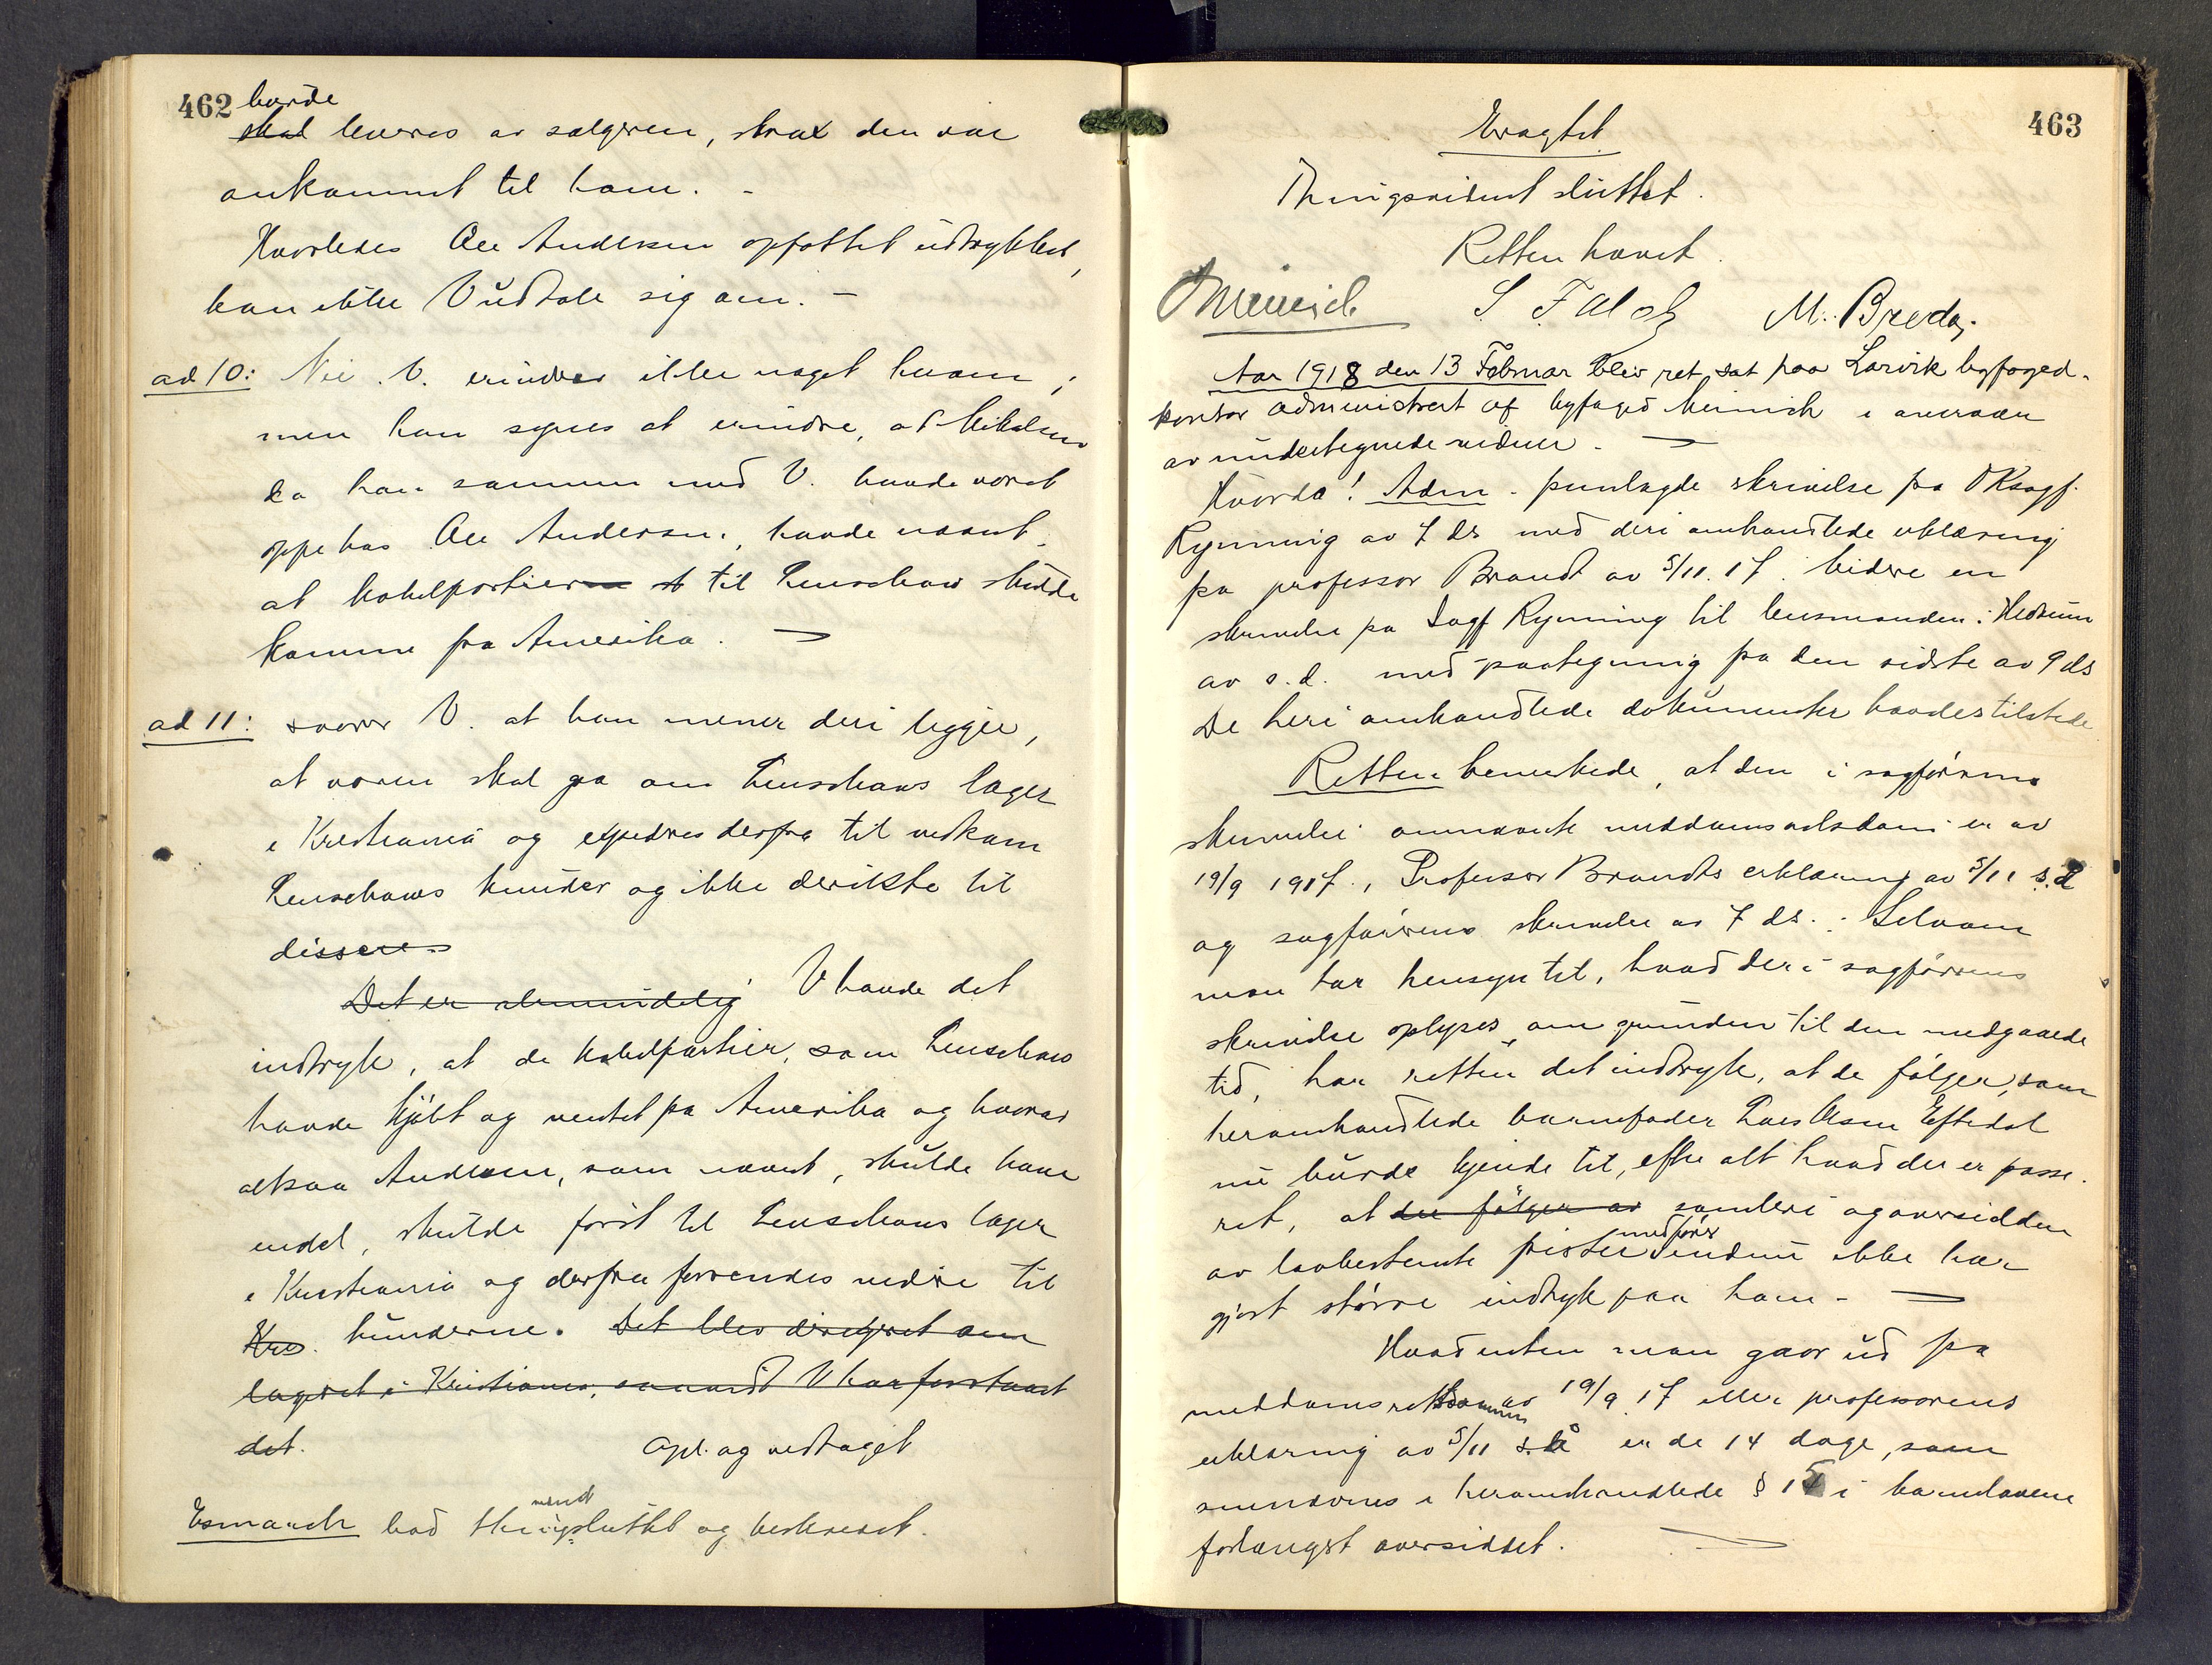 462
burde
skal leveres av sælgeren, strax den var
ankommet til ham. -
Hvorledes Ole Andersen opfattet udtrykket,
kan ikke V udtale sig om. -
ad 10: Nei. V. erindrer ikke noget herom;
men han synes at erindre, at Mikelsen
da han sammen med V. havde været
oppe hos Ole Andersen, havde nævnt
at kobelpartierne til Lenschow skulde
komme fra Amerika.
ad 11: svarer V. at han mener deri ligger,
at varen skal gaa om Lenschows lager
i Kristiania og expederes derfra til vedkom
Lenschows kunder og ikke derikte til
dissere
Det er almindelig V havde det
indtryk, at de kabelpartier, som Lenschow
havde kjøbt og ventet fra Amerika og hvorav
altsaa Andersen, som nævnt, skulde have
endel, skulde først til Lenschows lager
i Kristiania og derfra forsendes videre til
Krs. kunderne. Det blev disigeret om
lageret i Kristiania, saavidt V har forstaaet
det. Opl. og vedtaget
Esmarch bad thingsvidnet sluttet og beskrevet.
463
Eragtet
Thingsvidnet sluttet.
Retten hævet.
Meinich S. Falck M. Breda
Aar 1918 den 13 Februar blev ret sat paa Larvik byfoged-
kontor administrert af byfoged Meinich i overvær
av undertegnede vidner.
Hvorda! Adm. fremlagde skrivelse fra OKsagf.
Rynning av 7 ds med deri omhandlede erklæring
fra professor Brandt av 5/11. 17. Videre en
skrivelse fra Sagf Rynning til lensmanden i Hedrum
av s.d. med paategning fra den sidste av 9 ds
De heri omhandlede dokumenter havdes tilstede
Retten bemerkede, at den i sagførerens
skrivelse omnævnte meddomsretsdom er av
19/9 1917., Professor Brandts erklæring av 5/11 s.å
og sagførerens skrivelse av 7 ds. Selvom
man tar hensyn til, hvad der i sagførerens
skrivelse oplyses om grunden til den medgaaede
tid, har retten det indtryk, at de følger, som
heromhandlede barnefader Lars Olsen Eftedal
nu burde kjende til, efter alt hvad der er passe-
ret, at der følger av somleri og oversidden
av lovbestemte frister medfører endnu ikke har
gjort større indtryk paa ham. -
Hvad enten man gaar ud fra
meddomsretsdommen av 19/9 17 eller professorens
erklæring av 5/11 s.å er de 14 dage, som
omnævnes i heromhandlede § 15 i barnelovene
forlængst oversiddet.